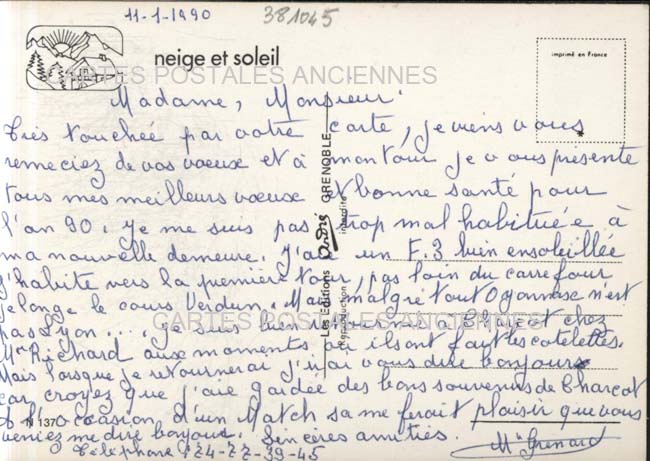 11-1-1990
381045
neige et soleil
imprimé en France
CARTES POSTALES ANCIENNES
Madame, Monsieur
Très touchée par votre carte, je viens vous
remeciez de vos voeux et à mon tour je vous présente
tous mes meilleurs voeux et bonne santé pour
l'an 90. Je me suis pas trop mal habituée à
ma nouvelle demeure. J'ai un F.3 bien ensoleillée
j'habite vers la première tour, pas loin du carrefour
je longe le cours Verdun. Mais malgré tout Oyonnax n'est
pas Lyon.... je suis bien retourné à chez
CARTES POSTALES ANCIENNES
Mr Richard aux moments où ils ont fait les cotelettes.
Mais lorsque je retournerai j'irai vous dire bonjour
car croyez que j'aie gardée des bons souvenirs de Charcot
à l'occasion d'un Match sa me ferait plaisir que vous
veniez me dire bonjour. Sincères amitiés.
Téléphone 724-77-39-45
Me Grenard
N 137
Les Editions André GRENOBLE
reproduction interdite